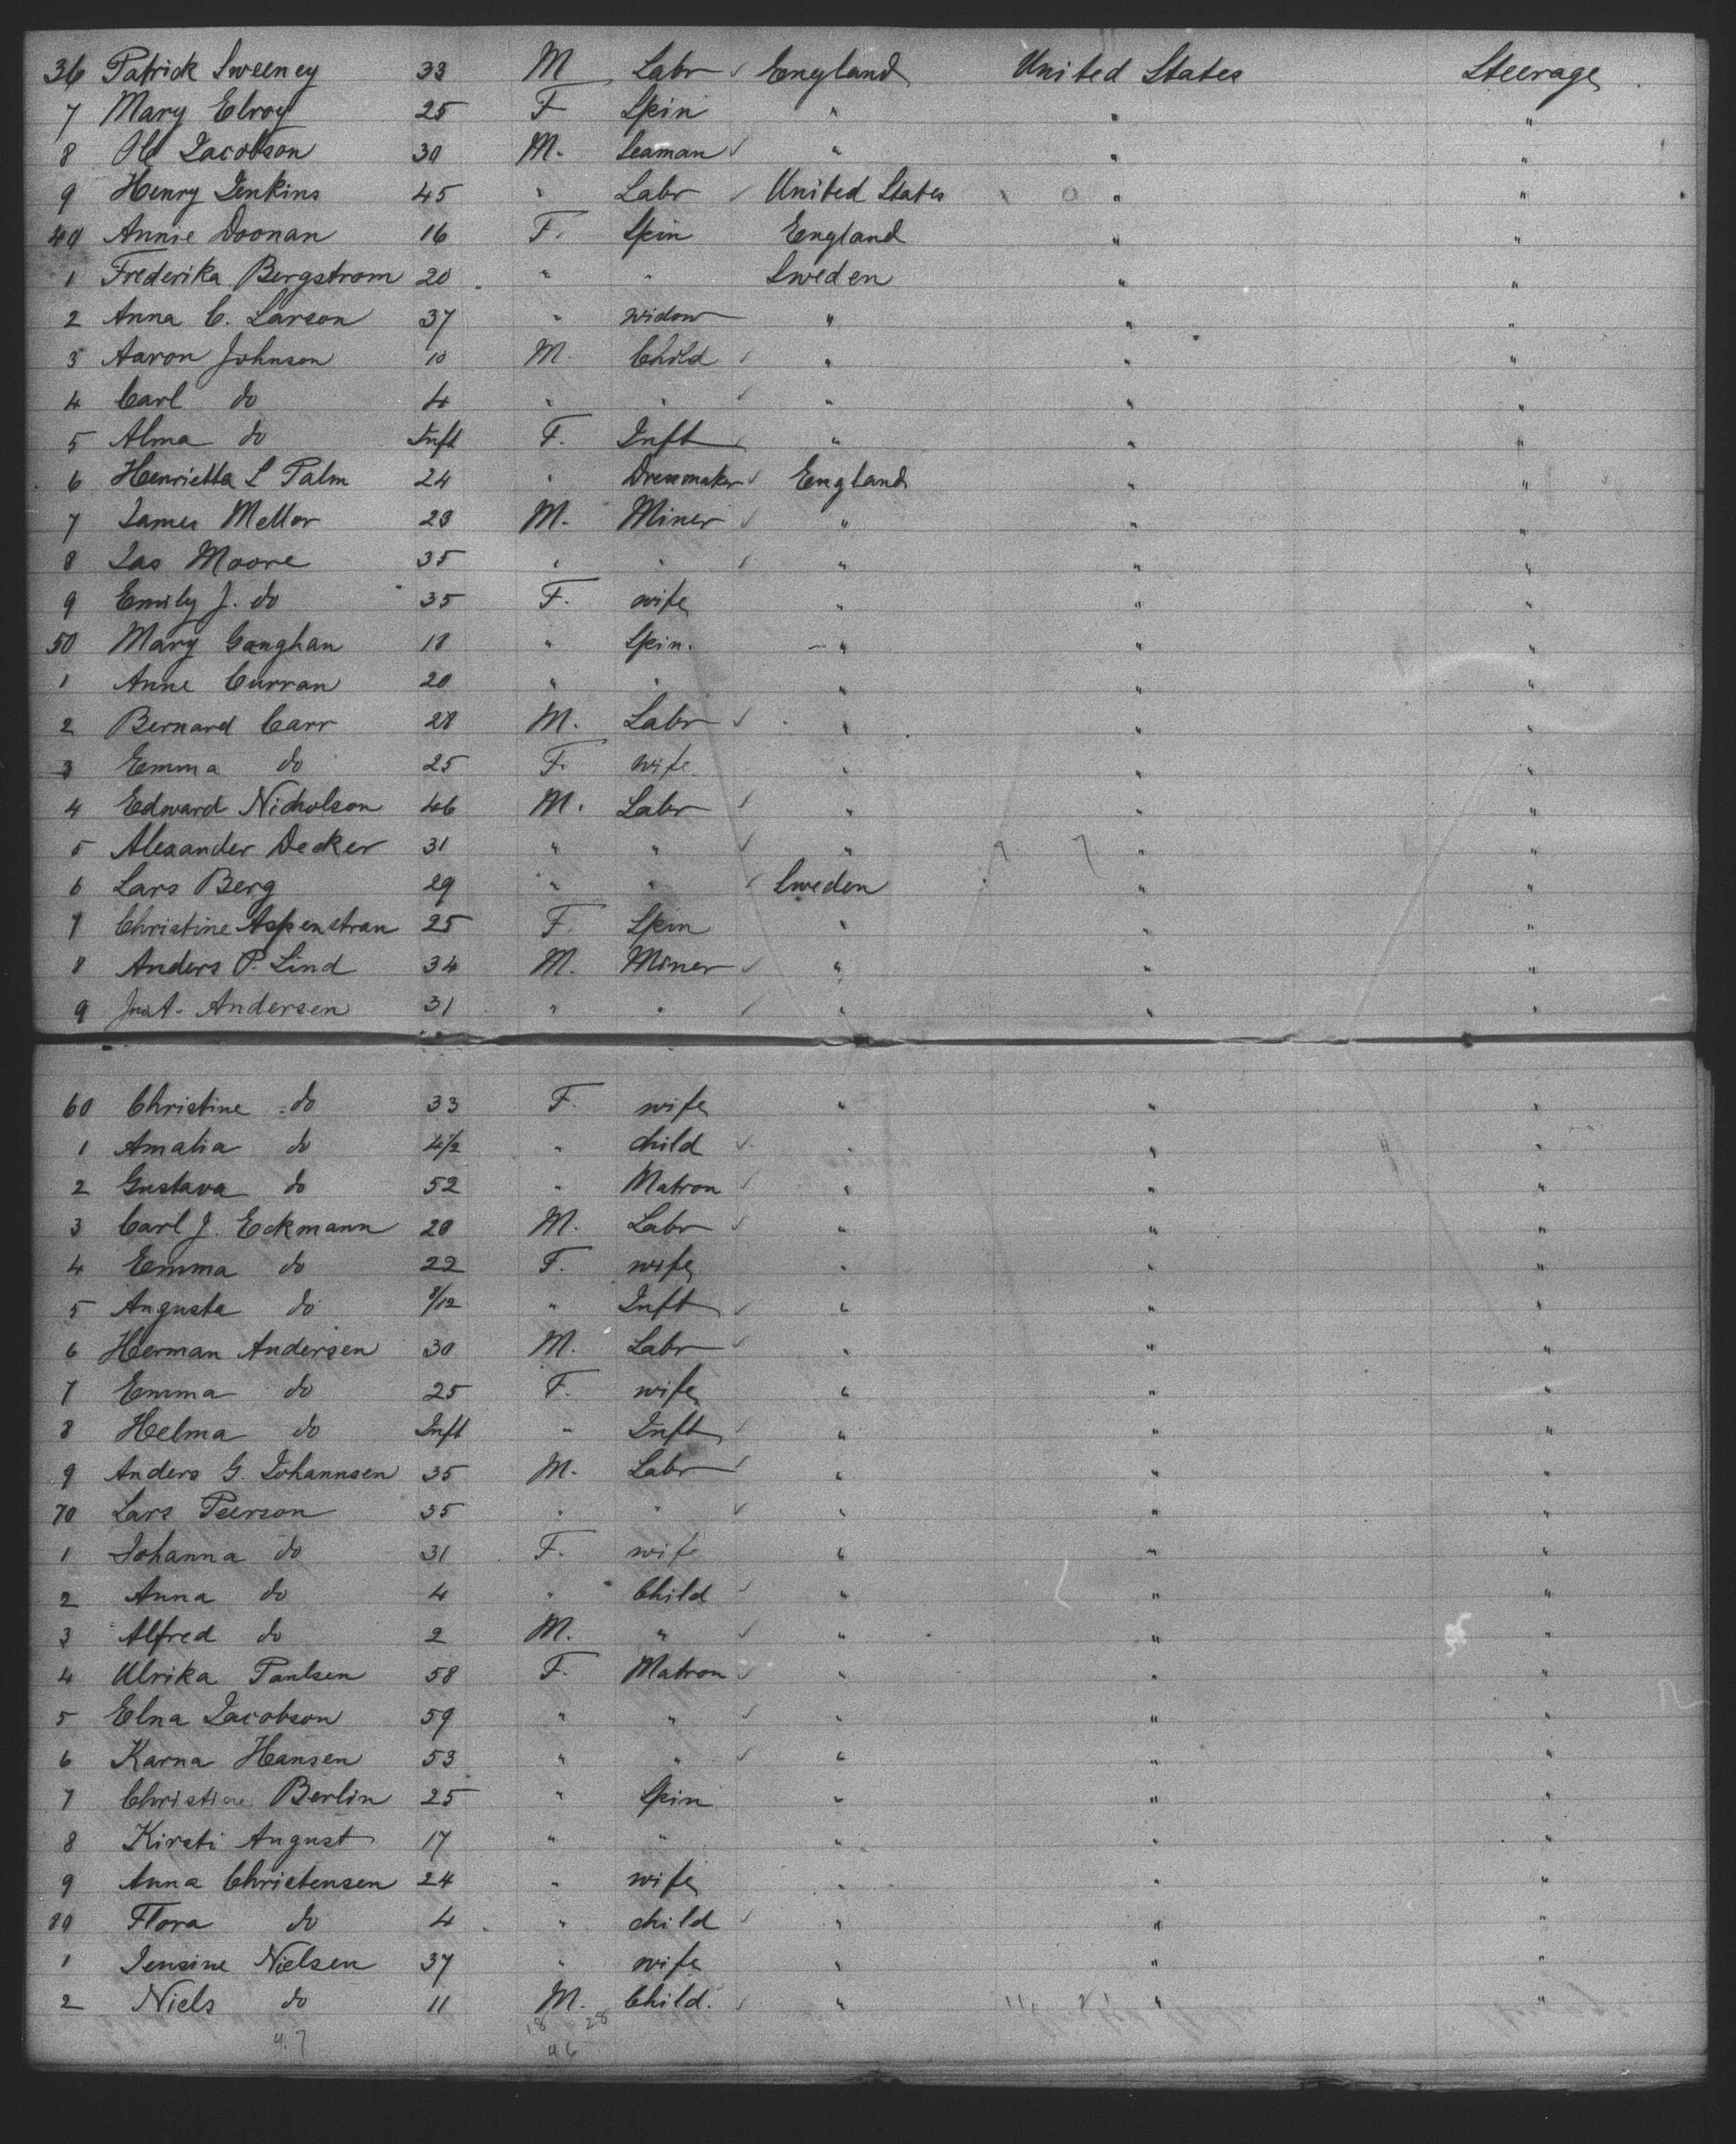 36 Patrick Sweeney 33 M Labr ✓ England United States Steerage
7 Mary Elroy 25 F Spin " " "
8 Ole Jacobson 30 M. Seaman ✓ " " "
9 Henry Jenkins 45 " Labr ✓ United States " "
40 Annie Doonan 16 F. Spin England " "
1 Frederika Bergstrom 20 " " Sweden " "
2 Anna C. Larson 37 " widow " " "
3 Aaron Johnson 10 M. Child ✓ " " "
4 Carl do 4 " " ✓ " " "
5 Alma do Inft F. Inft ✓ " " "
6 Henrietta L Palm 24 " Dressmaker ✓ England " "
7 James Mellor 23 M. Miner ✓ " " "
8 Jas Moore 35 " " ✓ " " "
9 Emily J. do 35 F. wife " " "
50 Mary Gaughan 18 " Spin. " " "
1 Anne Curran 20 " " " " "
2 Bernard Carr 28 M. Labr ✓ " " "
3 Emma do 25 F. wife " " "
4 Edward Nicholson 46 M. Labr ✓ " " "
5 Alexander Decker 31 " " ✓ " " "
6 Lars Berg 29 " " ✓ Sweden " "
7 Christine Aspenstran 25 F. Spin " " "
8 Anders P. Lind 34 M. Miner ✓ " " "
9 A. Andersen 31 " " ✓ " " "
60 Christine do 33 F. wife " " "
1 Amalia do 4½ " child ✓ " " "
2 Gustava do 52 " Matron ✓ " " "
3 Carl J. Eckmann 20 M. Labr ✓ " " "
4 Emma do 22 F. wife " " "
5 Augusta do 9/12 " Inft ✓ " " "
6 Herman Andersen 30 M. Labr ✓ " " "
7 Emma do 25 F. wife " " "
8 Helma do Inft " Inft ✓ " " "
9 Anders G. Johannsen 35 M. Labr ✓ " " "
70 Lars Peerson 35 " " ✓ " " "
1 Johanna do 31 F. wife " " "
2 Anna do 4 " Child ✓ " " "
3 Alfred do 2 M. " ✓ " " "
4 Ulrika Paulsen 58 F. Matron ✓ " " "
5 Elna Jacobson 59 " " ✓ " " "
6 Karna Hansen 53 " " ✓ " " "
7 Christine Berlin 25 " Spin " " "
8 Kirsti August 17 " " " " "
9 Anna Christensen 24 " wife " " "
80 Flora do 4 " child ✓ " " "
1 Jensine Nielsen 37 " wife " " "
2 Niels do 11 M. Child. ✓ " " "
18 28
47 46